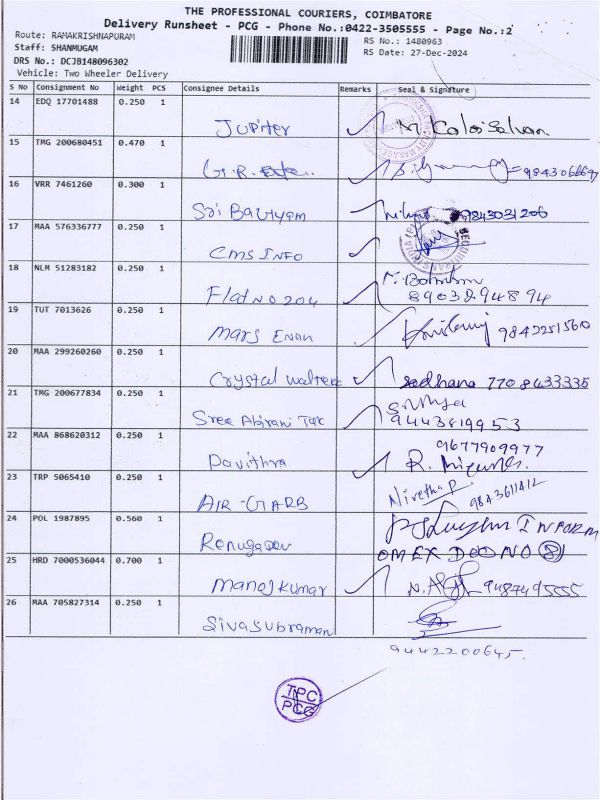 THE PROFESSIONAL COURIERS, COIMBATORE
Delivery Runsheet - PCG - Phone No.:0422-3505555 - Page No.:2
Route: RAMAKRISHNAPURAM
RS No.: 1480963
Staff: SHANMUGAM
RS Date: 27-Dec-2024
DRS No.: DCJB148096302
Vehicle: Two Wheeler Delivery
S No Consignment No Weight PCS Consignee Details Remarks Seal & Signature
14 EDQ 17701488 0.250 1
Jupiter
15 TMG 200680451 0.470 1
G.R.
16 VRR 7461260 0.300 1
Sri 9843031206
17 MAA 576336777 0.250 1
CMS INFO
18 NLM 51283182 0.250 1
Flat NO 204 89038 94894
19 TUT 7013626 0.250 1
Mars 9842251560
20 MAA 299260260 0.250 1
Crystal Sadhana 7708433335
21 TMG 200677834 0.250 1
Sree Abirami Tax 9443819953
22 MAA 868620312 0.250 1
9677909977
Pavithra R.
23 TRP 5065410 0.250 1
AIR Nivetha P 9843611412
24 POL 1987895 0.560 1
INFORM
OMEX DOO NO 8
25 HRD 7000536044 0.700 1
Manoj Kumar 9487495555
26 MAA 705827314 0.250 1
Sivasubraman
9442200645.
TPC
PCG